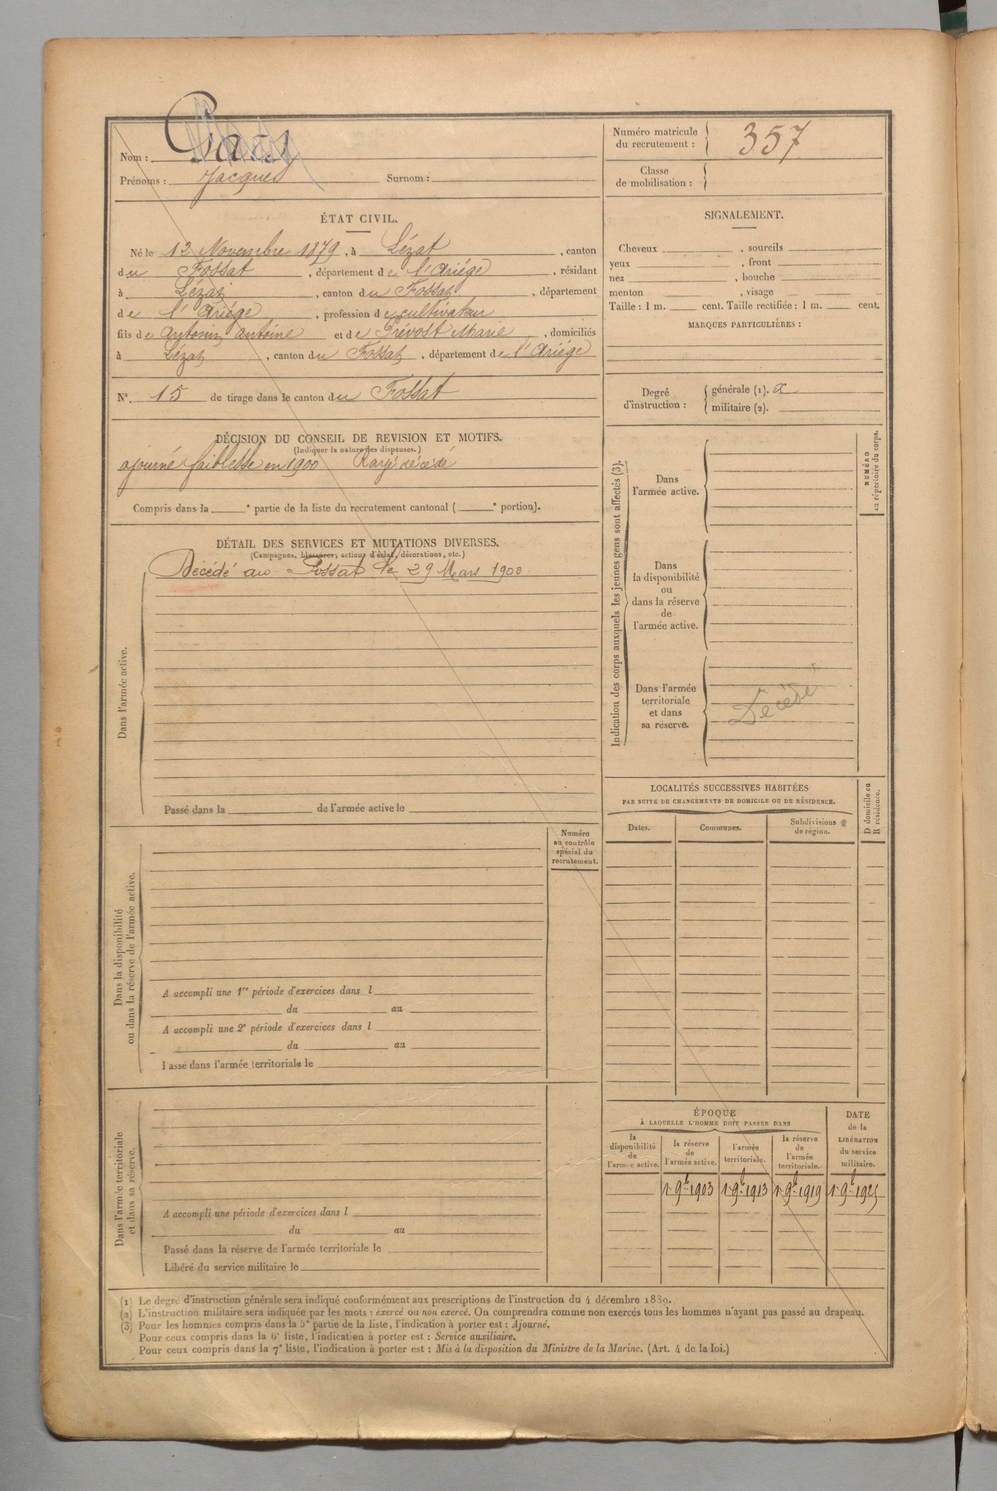 Nom : Paul
Prénoms : Jacques Surnom :
Numéro matricule du recrutement : 357
Classe de mobilisation :
ÉTAT CIVIL.
Né le 12 Novembre 1879, à Lézat, canton
du Fossat, département de l'Ariége, résidant
à Lézat, canton du Fossat, département
de l'Ariége, profession de cultivateur
fils de Antonin Antoine et de Prévost Marie, domiciliés
à Lézat, canton du Fossat, département de l'Ariége
N° 15 de tirage dans le canton du Fossat
DÉCISION DU CONSEIL DE REVISION ET MOTIFS.
(Indiquer la nature des dispenses.)
ajourné faiblesse en 1900 Rayé décédé
Compris dans la e partie de la liste du recrutement cantonal ( e portion).
DÉTAIL DES SERVICES ET MUTATIONS DIVERSES.
(Campagnes, blessures, actions d'éclat, décorations, etc.)
Décédé au Fossat le 29 Mars 1900
Dans l'armée active.
Passé dans la de l'armée active le
Numéro
au contrôle
spécial du
recrutement.
Dans la disponibilité
ou dans la réserve de l'armée active.
A accompli une 1re période d'exercices dans l
du au
A accompli une 2e période d'exercices dans l
du au
Passé dans l'armée territoriale le
Dans l'armée territoriale
et dans sa réserve.
A accompli une période d'exercices dans l
du au
Passé dans la réserve de l'armée territoriale le
Libéré du service militaire le
SIGNALEMENT.
Cheveux , sourcils
yeux , front
nez , bouche
menton , visage
Taille : 1 m. cent. Taille rectifiée : 1 m. cent.
MARQUES PARTICULIÈRES :
Degré d'instruction : générale (1). a
militaire (2).
Indication des corps auxquels les jeunes gens sont affectés (3).
NUMÉRO
au répertoire du corps.
Dans
l'armée active.
Dans
la disponibilité
ou
dans la réserve
de
l'armée active.
Dans l'armée
territoriale
et dans
sa réserve.
Décédé
LOCALITÉS SUCCESSIVES HABITÉES
PAR SUITE DE CHANGEMENTS DE DOMICILE OU DE RÉSIDENCE.
Dates. Communes. Subdivisions de région.
D domicile ou
R résidence.
ÉPOQUE
À LAQUELLE L'HOMME DOIT PASSER DANS
DATE
de la
LIBÉRATION
du service
militaire.
la disponibilité de l'armée active.
la réserve de l'armée active.
l'armée territoriale.
la réserve de l'armée territoriale.
1er 9bre 1903 1er 9bre 1913 1er 9bre 1919 1er 9bre 1925
(1) Le degré d'instruction générale sera indiqué conformément aux prescriptions de l'instruction du 4 décembre 1889.
(2) L'instruction militaire sera indiquée par les mots : exercé ou non exercé. On comprendra comme non exercés tous les hommes n'ayant pas passé au drapeau.
(3) Pour les hommes compris dans la 5e partie de la liste, l'indication à porter est : Ajourné.
Pour ceux compris dans la 6e liste, l'indication à porter est : Service auxiliaire.
Pour ceux compris dans la 7e liste, l'indication à porter est : Mis à la disposition du Ministre de la Marine. (Art. 4 de la loi.)